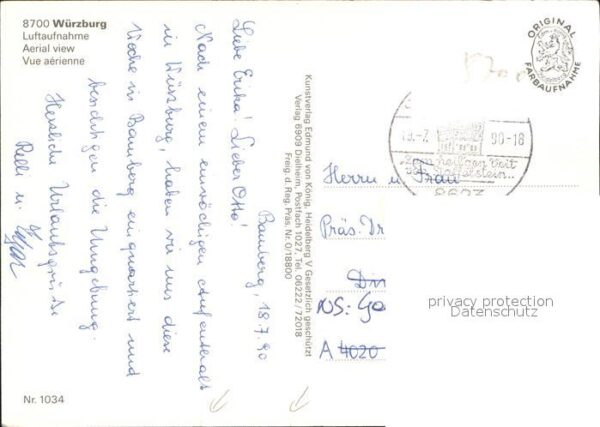 8700 Würzburg
Luftaufnahme
Aerial view
Vue aérienne
Bamberg, 18.7.90
Liebe Erika! Lieber Otto!
Nach einem einwöchigen Aufenthalt
in Würzburg, haben wir uns diese
Woche in Bamberg einquartiert und
besichtigen die Umgebung.
Herzliche Urlaubsgrüße
Kunstverlag Edmund von König, Heidelberg V Gesetzlich geschützt
Verlag 6909 Dielheim, Postfach 1027, Tel. 06222/72018
Freig. d. Reg. Präs. Nr. 0/18800
ORIGINAL
FARBAUFNAHME
19.-7. 90-18
8623
Herrn u. Frau
Präs. Dr
NS: Ga
A 4020
privacy protection
Datenschutz
Nr. 1034